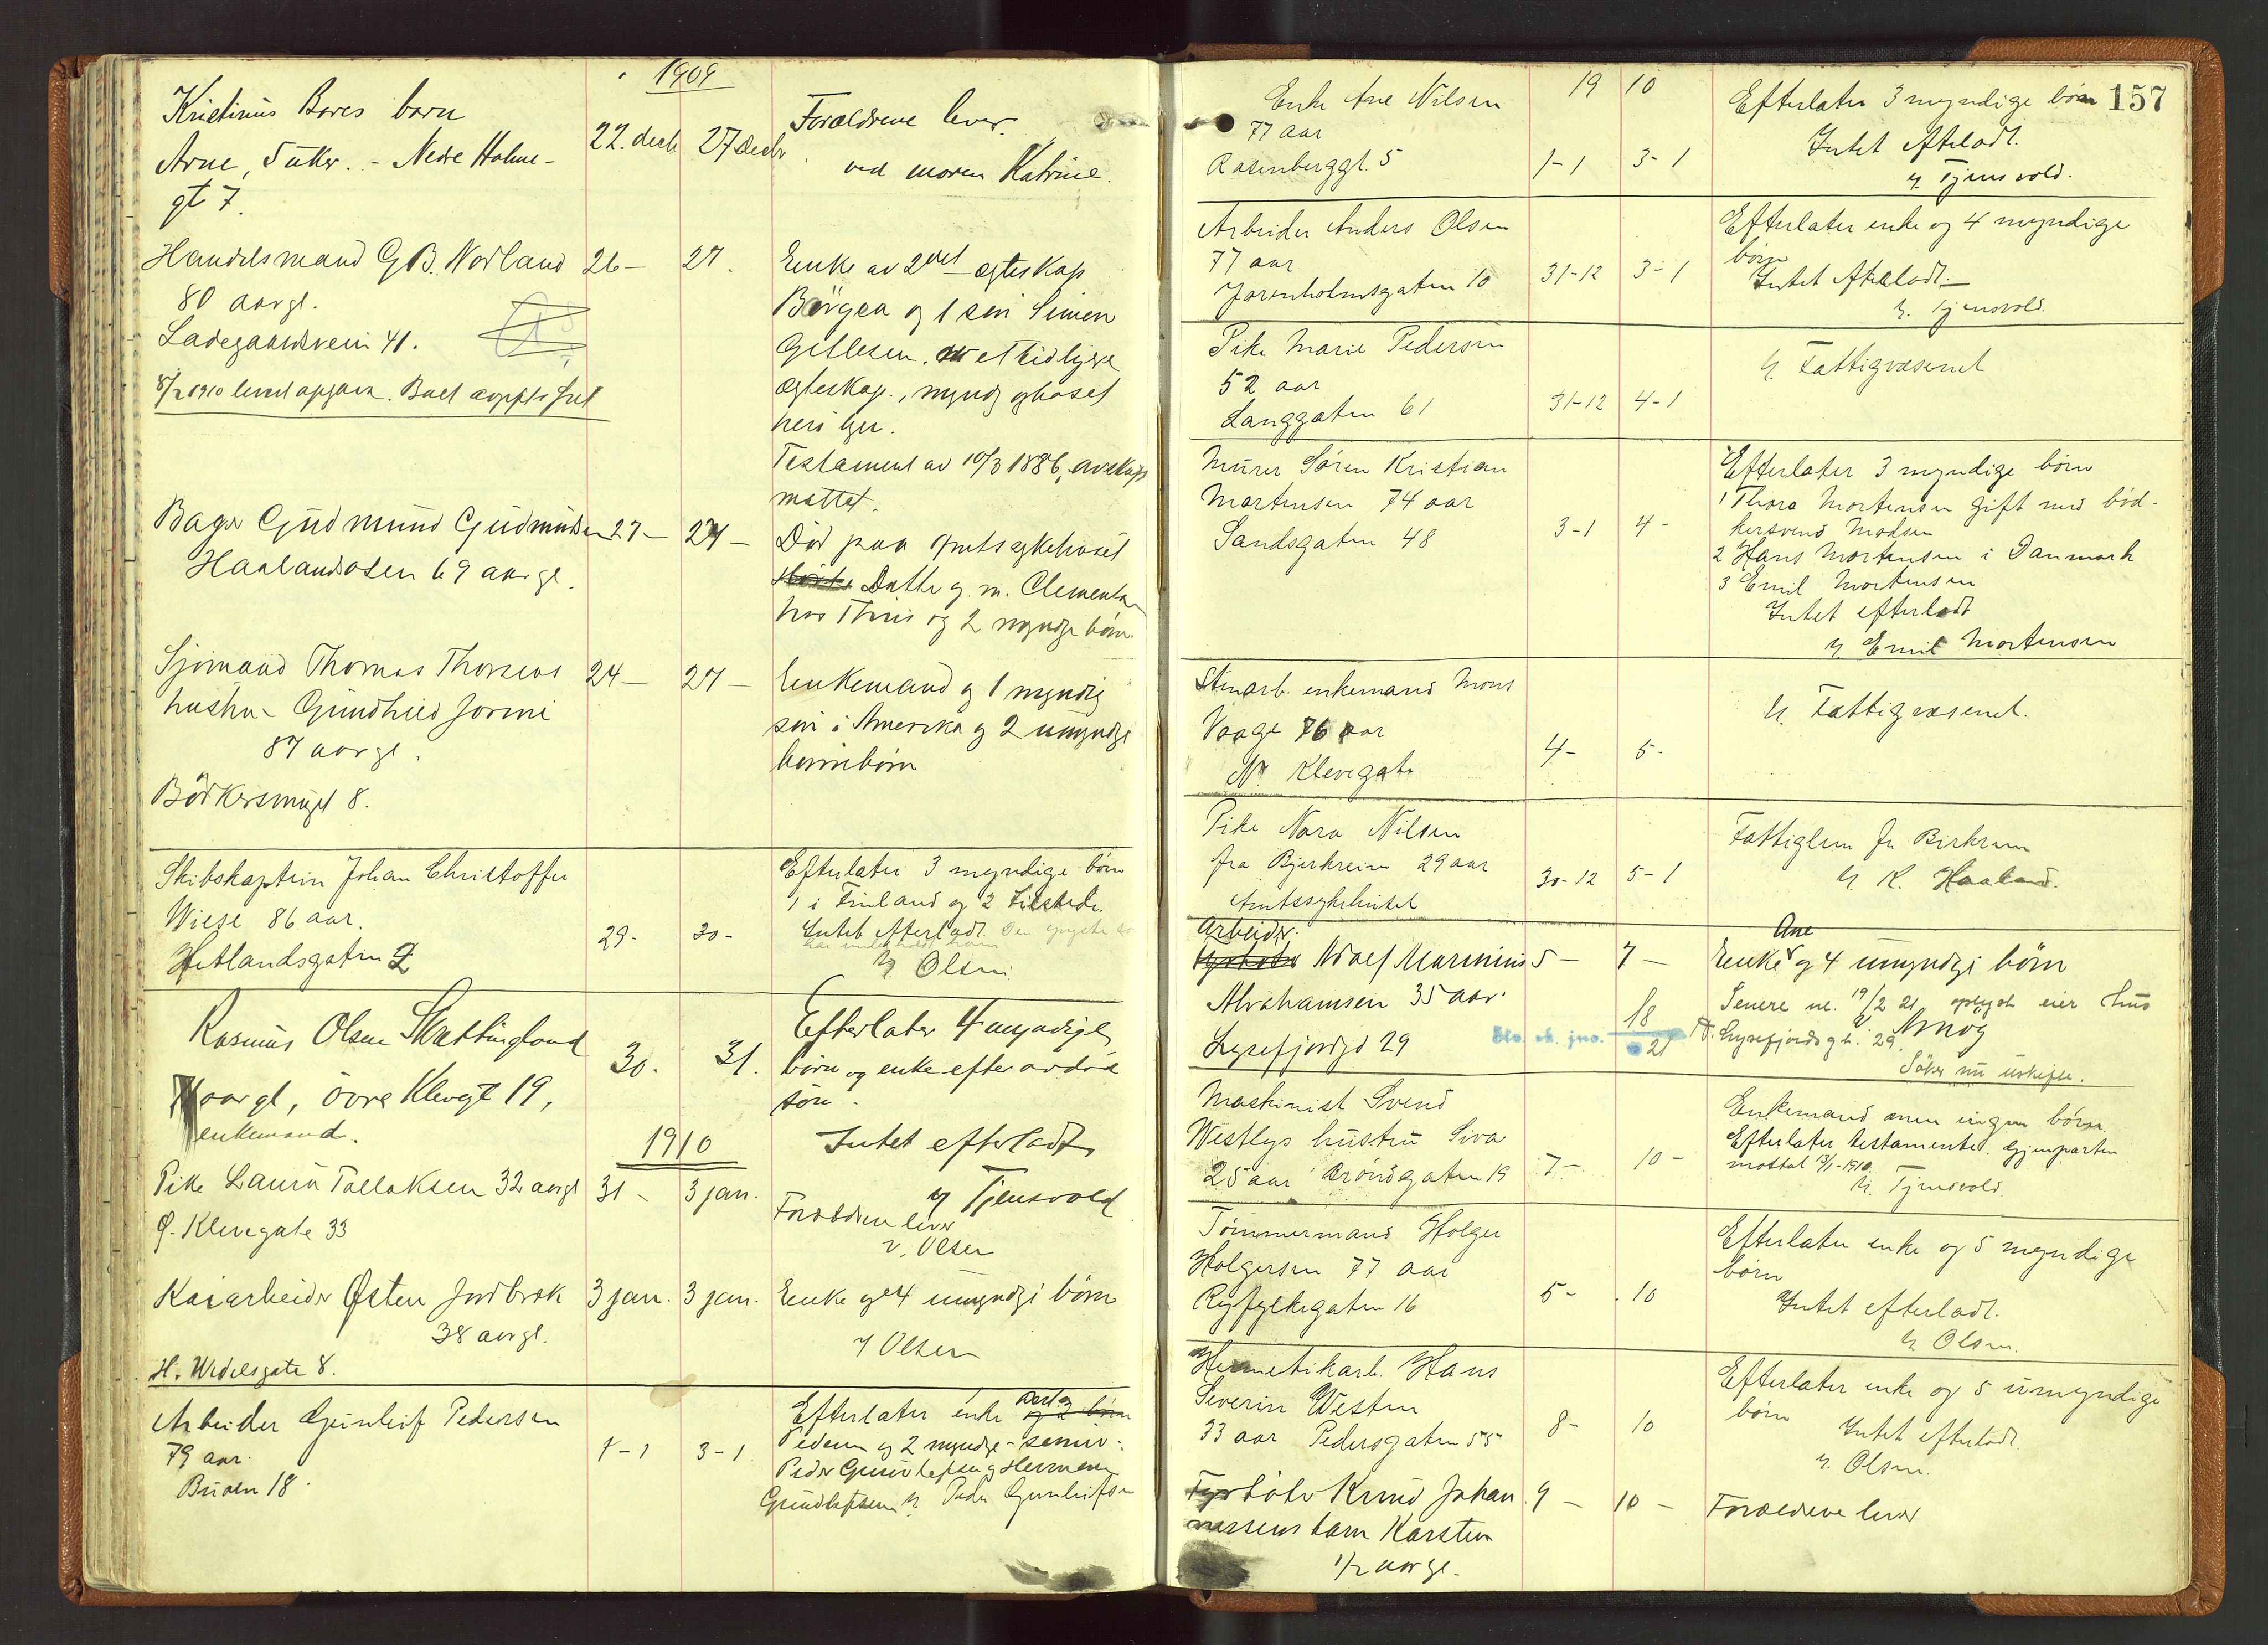 1909
Kristinus Bores barn
Arne, 5 uker. - Nedre Holme-
gt 7.
22. decb 27 decbr
Forældrene lever.
ved moren Katrine.
Handelsmand G.B. Norland 26 - 27.
80 aar gl.
Ladegaardsvein 41.
8/2 1910 levert opgave. Boet
Enke av 2det ægteskap
Börgea og 1 sön Simen
Gitlesen. av et tidligere
ægteskap, myndig og boset
her i byen.
Testament av 10/3 1886,
mottat.
Bager Gudmund Gudmundsen 27 - 27 -
Haalandsosen 69 aar gl.
Död paa amtssykehuset
Datter g. m. Clementsen
hos Thiis og 2 myndige börn.
Sjömand Thomas Thorsens 24 - 27 -
hustru Gundhild Jorine
87 aar gl.
Bödkersmuget 8.
Enkemand og 1 myndig
sön i Amerika og 2 umyndige
barnebörn
Skibskaptein Johan Christoffer
Wiese 86 aar.
Hetlandsgaten 2
29. 30 -
Efterlater 3 myndige børn
1 i Finland og 2 tilstede.
Intet efterladt. Den yngste
har underholdt ham
v Olsen.
Rasmus Olsen Skrettingland
aar gl, övre Klevegt 19,
enkemand.
30. 31.
Efterlater 4 myndige
børn og enke efter avdød
søn.
Intet efterladt
v Tjensvold
1910
Pike Laura Tollaksen 32 aar gl 31 - 3 jan.
Ø. Klevegate 33
Forældrene lever
v. Olsen
Kaiarbeider Østen Jordbrek 3 jan. 3 jan.
38 aar gl.
H. Wedelsgate 8.
Enke og 4 umyndige börn
v Olsen
Arbeider Gunleif Pedersen
79 aar.
Buøen 18.
1 - 1 3 - 1
Efterlater enke
og 2 børn
og 2 myndige sønner.
Peder Gunleifsen og Herman
Gundleifsen v. Peder Gunleifsen
157
19 10
Enke Ane Nilsen
77 aar
Rosenberggt. 5
1 - 1 3 - 1
Efterlater 3 myndige børn
Intet efterladt.
v. Tjensvold.
Arbeider Anders Olsen
77 aar
Jorenholmsgaten 10
31-12 3 - 1
Efterlater enke og 4 myndige
børn
Intet efterladt.
v. Tjensvold.
Pike Marie Pedersen
52 aar
Langgaten 61
31-12 4-1
v. Fattigvæsenet
Murer Søren Kristian
Mortensen 74 aar
Sandsgaten 48
3-1 4 -
Efterlater 3 myndige børn
1 Thora Mortensen gift med bød-
kersvend Madsen
2 Hans Mortensen i Danmark
3 Emil Mortensen
Intet efterladt
v Emil Mortensen
Stenarb. enkemand Mons
Vaage 76 aar
N. Klevegate
4 - 5 -
v. Fattigvæsenet.
Pike Nara Nilsen
fra Bjerkreim 29 aar
Amtssykehuset
30-12 5-1
Fattiglem fr Birkrem
v K. Haaland.
Arbeider
Adolf Marinius 5 - 7 -
Abrahamsen 35 aar.
Lysefjordgt 29
18
21
Ane
Enke og 4 umyndige börn
Senere 19/2 21 oplyst eier hus
Lysefjordsgt. 29
Söker nu uskifte.
Maskinist Svend
Westlys hustru Siva
25 aar Brøndgaten 19
7 - 10 -
Enkemand men ingen børn.
Efterlater testamente. Gjenparten
mottat 13/1-1910.
v. Tjensvold.
Tømmermand Holger
Holgersen 77 aar
Ryfylkegaten 16
5 - 10
Efterlater enke og 5 myndige
børn
Intet efterladt.
v. Olsen.
Hermetikarb. Hans
Severin Westen
33 aar Pedersgaten 55
8 - 10
Efterlater enke og 5 umyndige
børn Intet efterladt.
v. Olsen.
Fyrbøter Knud Johan 9 - 10 -
nessens barn Karsten
1/2 aar gl.
Forældrene lever